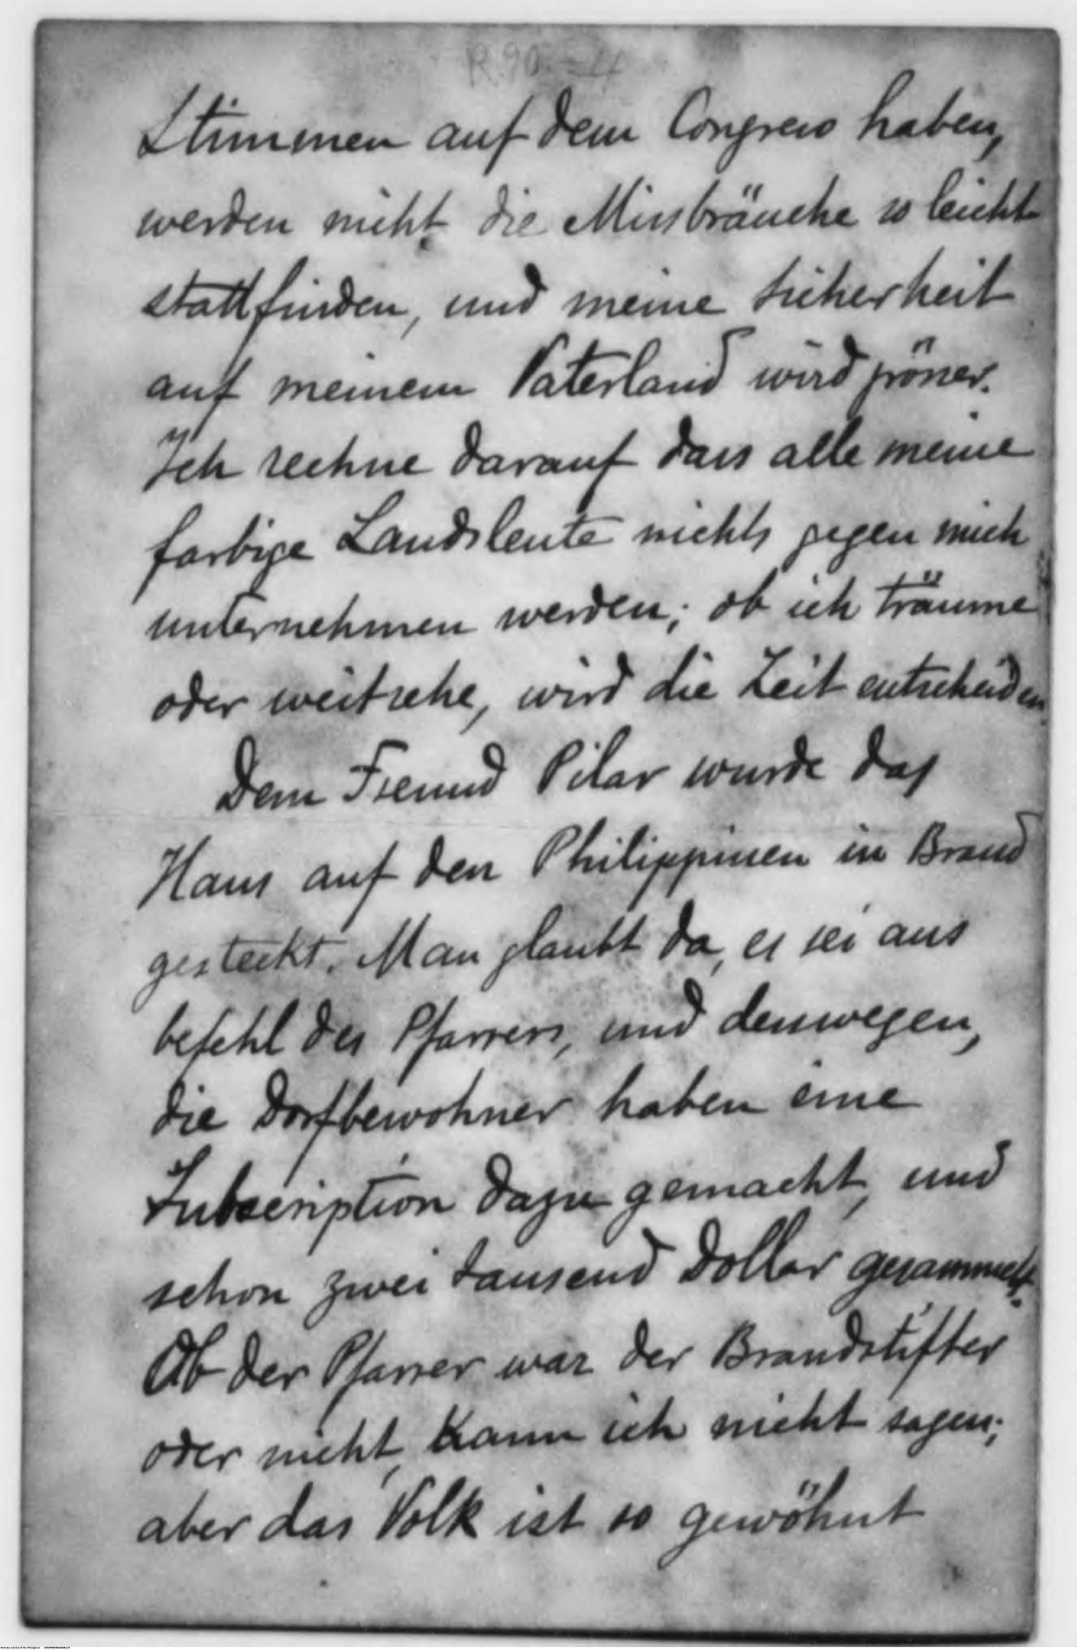 R.90.-4
Stimmen auf dem Congress haben,
werden nicht die Missbräuche so leicht
stattfinden, und meine Sicherheit
auf meinem Vaterland wird gröner.
Ich rechne darauf dass alle meine
farbige Landsleute nichts gegen mich
unternehmen werden; ob ich träume
oder weitsehe, wird die Zeit entscheiden.
Dem Freund Pilar wurde das
Haus auf den Philippinen in Brand
gesteckt. Man glaubt da, es sei aus
befehl des Pfarrers, und desswegen,
die Dorfbewohner haben eine
Subscription dazu gemacht, und
schon zwei tausend Dollar gesammelt.
Ob der Pfarrer war der Brandstifter
oder nicht, kann ich nicht sagen;
aber das Volk ist so gewöhnt